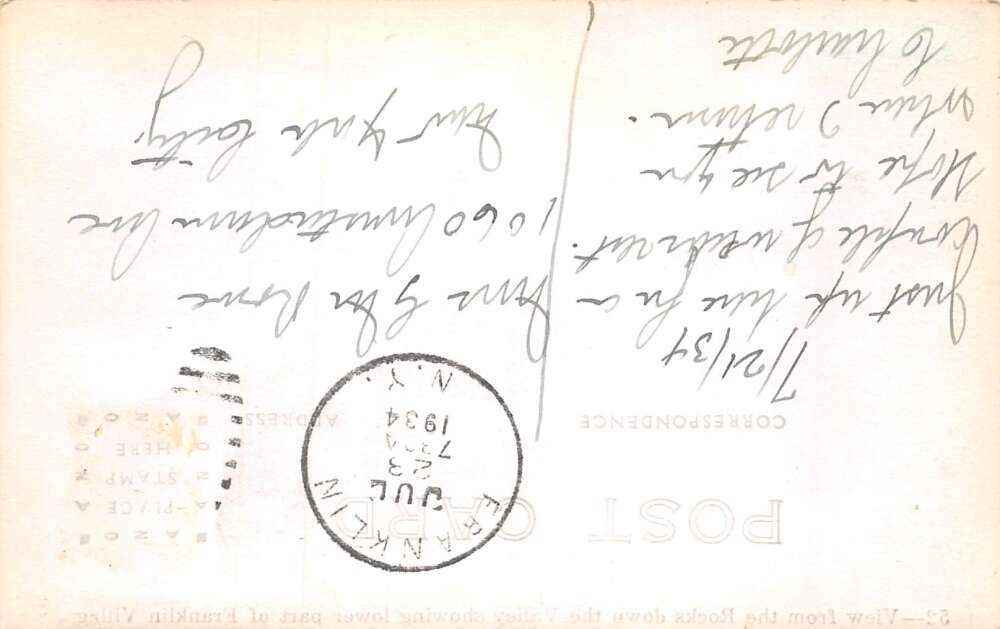 52—View from the Rocks down the Valley showing lower part of Franklin Villag
POST CARD
CORRESPONDENCE
ADDRESS
PLACE
STAMP
HERE
FRANKLIN
JUL
23
1934
N.Y.
7/21/34
Just up here for a
Couple of weeks rest.
Hope to see you
when I return.
to Charlotte
Mrs G M Rowe
1060 Amsterdam Ave
New York City